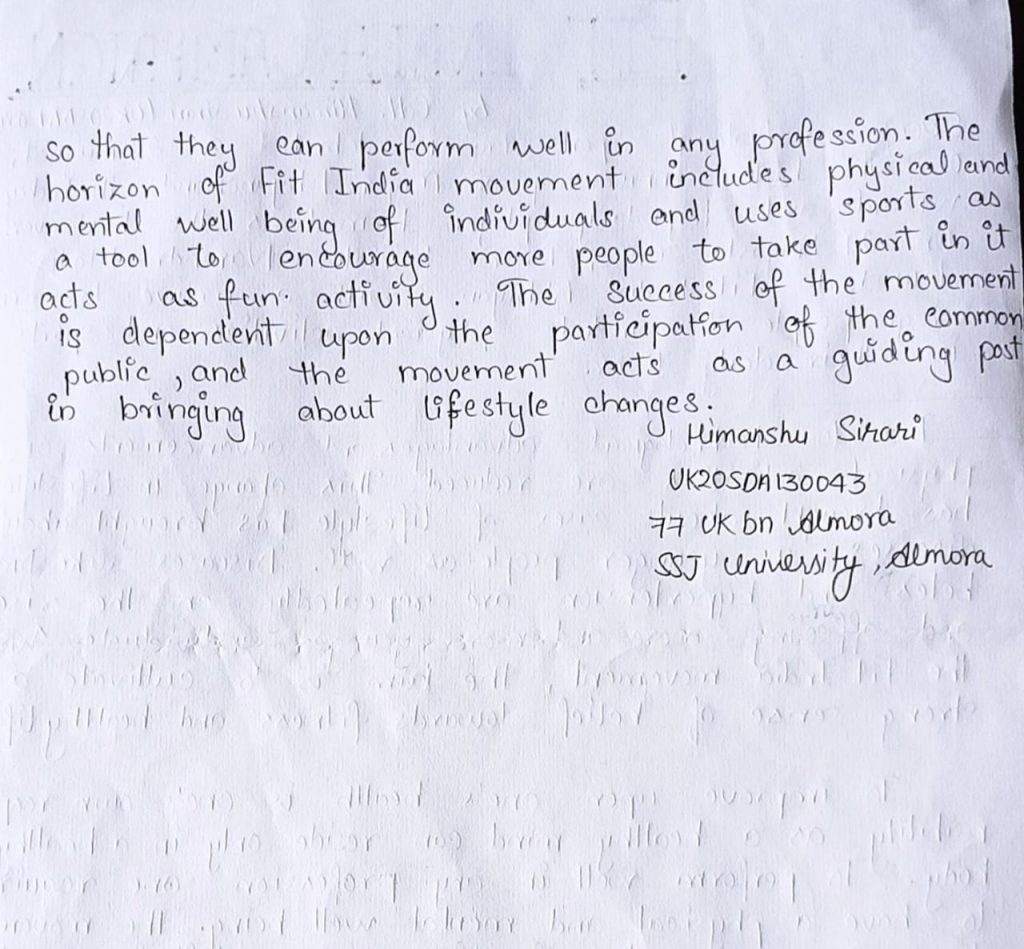 so that they can perform well in any profession. The
horizon of Fit India movement includes physical and
mental well being of individuals and uses sports as
a tool to encourage more people to take part in it
acts as fun activity. The success of the movement
is dependent upon the participation of the common
public, and the movement acts as a guiding post
in bringing about lifestyle changes.
Himanshu Sirari
UK20SDA130043
77 UK bn Almora
SSJ University, Almora